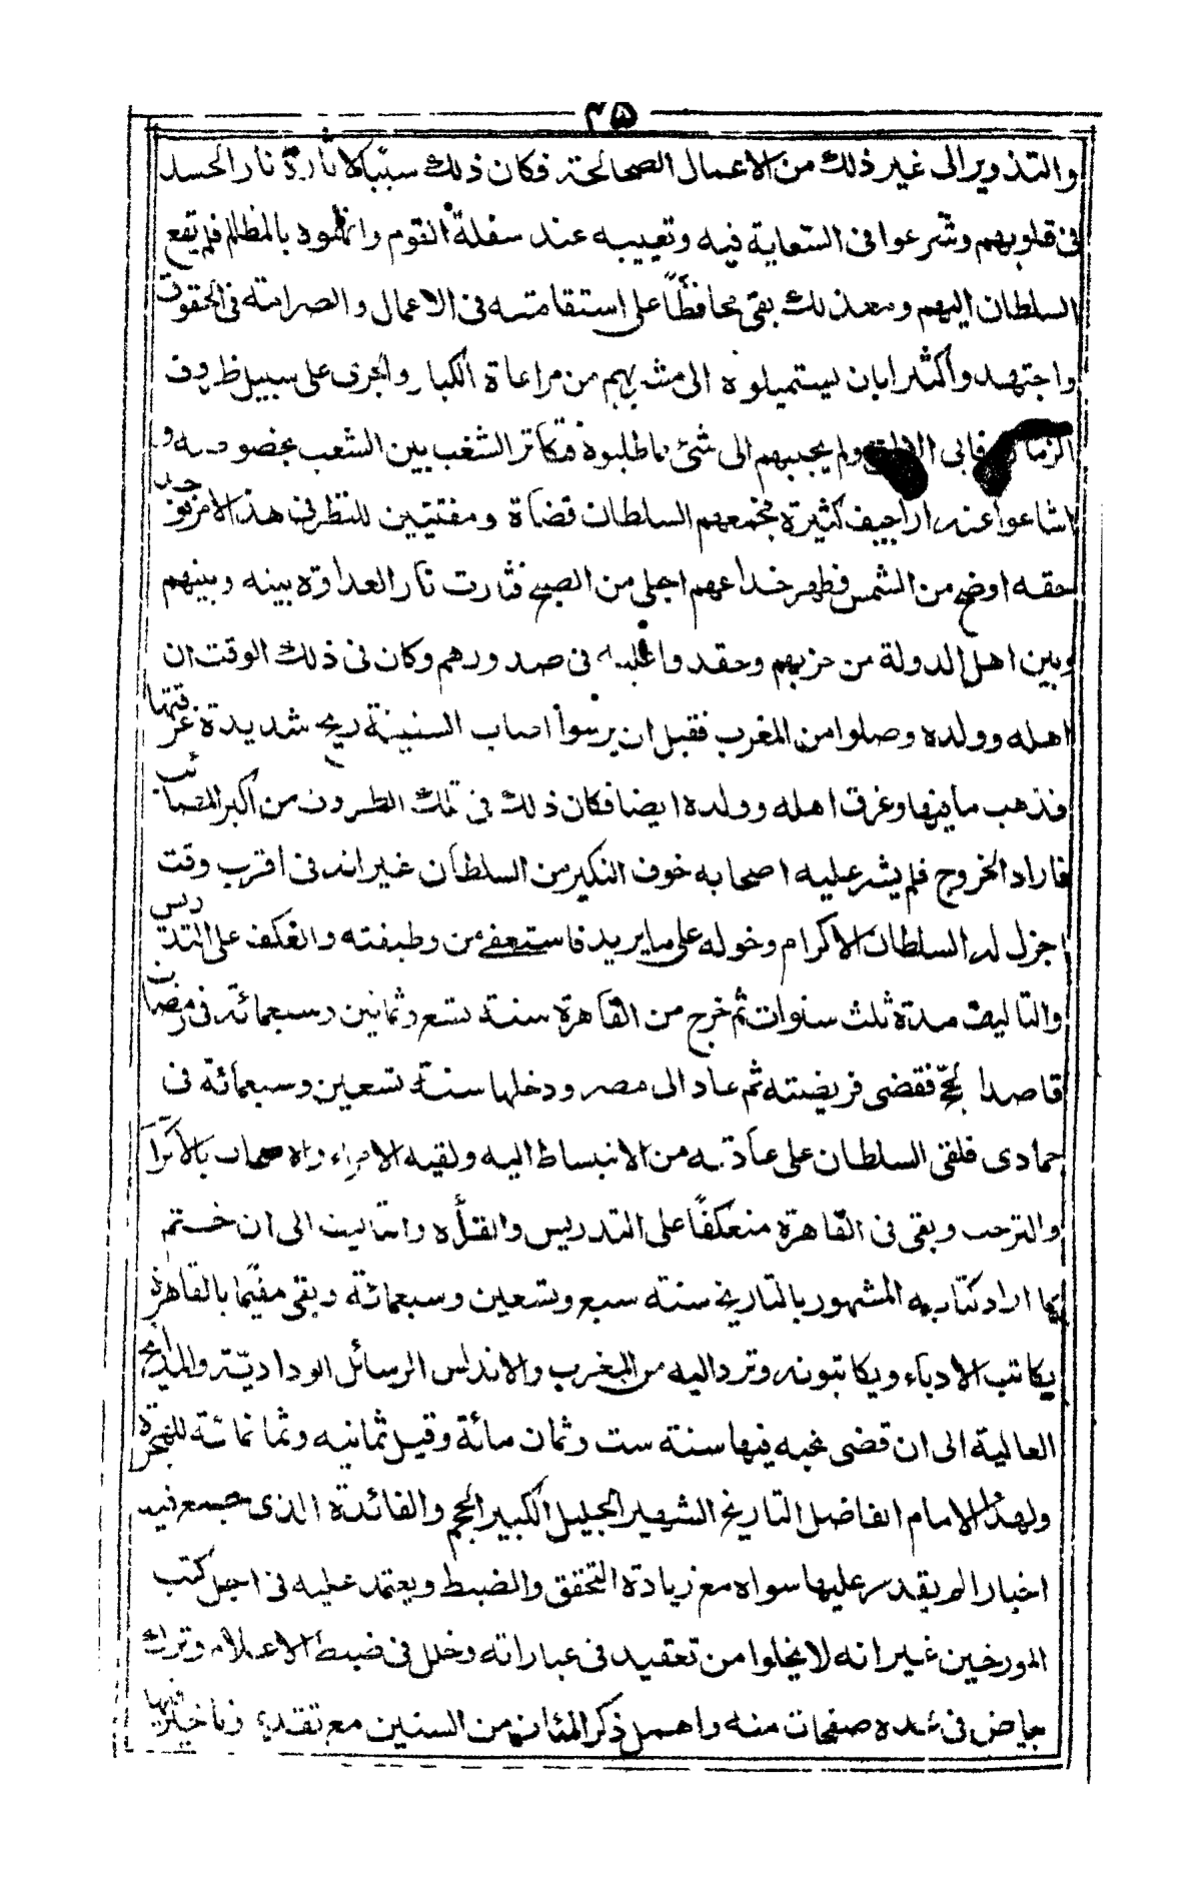 ۴۵
والتذوير الى غير ذلك من الاعمال الصحالحة فكان ذلك سببا لاثارة نار الحسد
فى قلوبهم وشرعوا فى السعاية فيه وتعييبه عند سفلة القوم واتهموه بالمظالم فلم يقع
السلطان اليهم ومعذلك بقى محافظًا على استقامته فى الاعمال والصرامته فى الحقوق
واجتهد واكثر ايان يستميلوه الى مشربهم من مراعاة الكبار واجرى على سبيل ظروف
الزمان فابى ولم يجبهم الى شئ ما طلبوه فتكاثر الشغب بين الشعب بخصوصه و
اشاعوا عنه اراجيف كثيرة فجمعهم السلطان قضاة ومفتيين للنظر فى هذا الامر فوجد
حقه اوضح من الشمس فظهر خداعهم اجلى من الصبح فثارت نار العداوة بينه وبينهم
وبين اهل الدولة من حزبهم وحقد واغلبه فى صدورهم وكان فى ذلك الوقت ان
اهله وولده وصلوا من المغرب فقبل ان يرسوا اصاب السفينة ريح شديدة غرقتها
فذهب ما فيها وغرق اهله وولده ايضا فكان ذلك فى تلك الظروف من اكبر المصائب
فاراد الخروج فلم يشر عليه اصحابه خوف النكير من السلطان غير انه فى اقرب وقت
اجزل له السلطان الاكرام وخوله على ما يريد فاستعفى من وظيفته وانعكف على التدريس
والتاليف مدة ثلث سنوات ثم خرج من القاهرة سنة تسع وثمانين وسبعمائة فى رمضان
قاصدا لحج فقضى فريضته ثم عاد الى مصر ودخلها سنة تسعين وسبعمائة فى
جمادى فلقى السلطان على عادته من الانبساط اليه ولقيه الامراء والاصحاب بالاكرام
والترحب وبقى فى القاهرة منعكفًا على التدريس والقرأه والتاليف الى ان ختم
بها اراد كتابه المشهور بالتاريخ سنة سبع وتسعين وسبعمائة وبقى مقيما بالقاهرة
يكاتب الادباء ويكاتبونه وترد اليه من المغرب والاندلس الرسائل الودادية والمدامح
العالية الى ان قضى نحبه فيها سنة ست وثمان مائة وقيل ثمانيه وثمانمائة للهجرة
ولهذا الامام الفاضل التاريخ الشهير الجليل الكبير الحجم والفائدة الذى جمع فيه
اخبارا لم يقدر عليها سواه مع زيادة التحقق والضبط ويعتمد عليه فى اجل كتب
المورخين غير انه لا يخلوا من تعقيد فى عباراته وخلل فى ضبط الاعلام وترك
بياض فى عده صفحات منه واهمل ذكر المئات من السنين مع تقديم وتاخير فيها